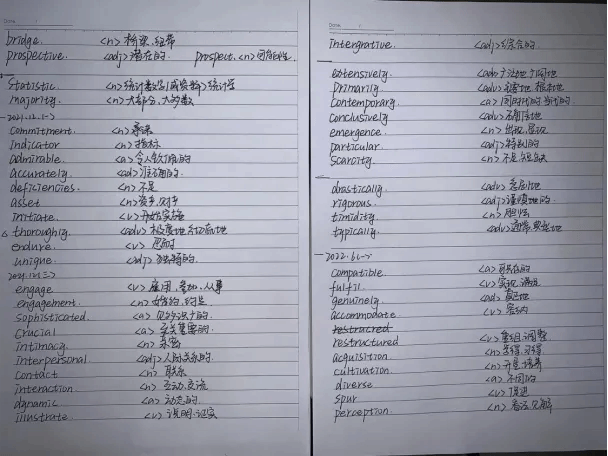 bridge. <n> 桥梁、纽带
prospective <adj> 潜在的 prospect. <n> 可能性
statistic. <n> 统计数字 统计学
majority <n> 大部分、大多数
2021.12.(一)
commitment. <n> 承诺
indicator <n> 指标
admirable. <a> 令人钦佩的
accurately. <adv> 准确的
deficiencies. <n> 不足
asset <n>
initiate <v> 开始实施
thoroughly. <adv> 极度地 彻底地
endure <v> 忍耐
unique. <adj> 独特的
2021.12(三)
engage <v> 雇用、参加、从事
engagement. <n>
sophisticated. <a> 见多识广的
crucial <a> 至关重要的
intimacy. <n> 亲密
interpersonal <adj> 人际关系的
contact <n> 联系
interaction <n> 互动、交流
dynamic <a> 动态的
illustrate. <v> 说明、证实
Date
intergrative. <adj> 综合的
extensively. <adv> 广泛地
primarily <adv> 根本地
contemporary. <a> 同时代的 当代的
conclusively <adv>
emergence. <n> 出现
particular. <adj> 特别的
scarcity <n> 不足 短缺
drastically. <adv>
rigorous. <adj> 谨慎地
timidity <n> 胆怯
typically. <adv> 通常
2022.6(一)
compatible <a>
fulfil. <v> 实现 满足
genuinely. <adv> 真正地
accommodate <v> 容纳
restructured <v> 重组 调整
acquisition <n> 获得 习得
cultivation. <n> 培养
diverse <a> 不同的
spur <v> 促进
perception. <n> 看法 见解